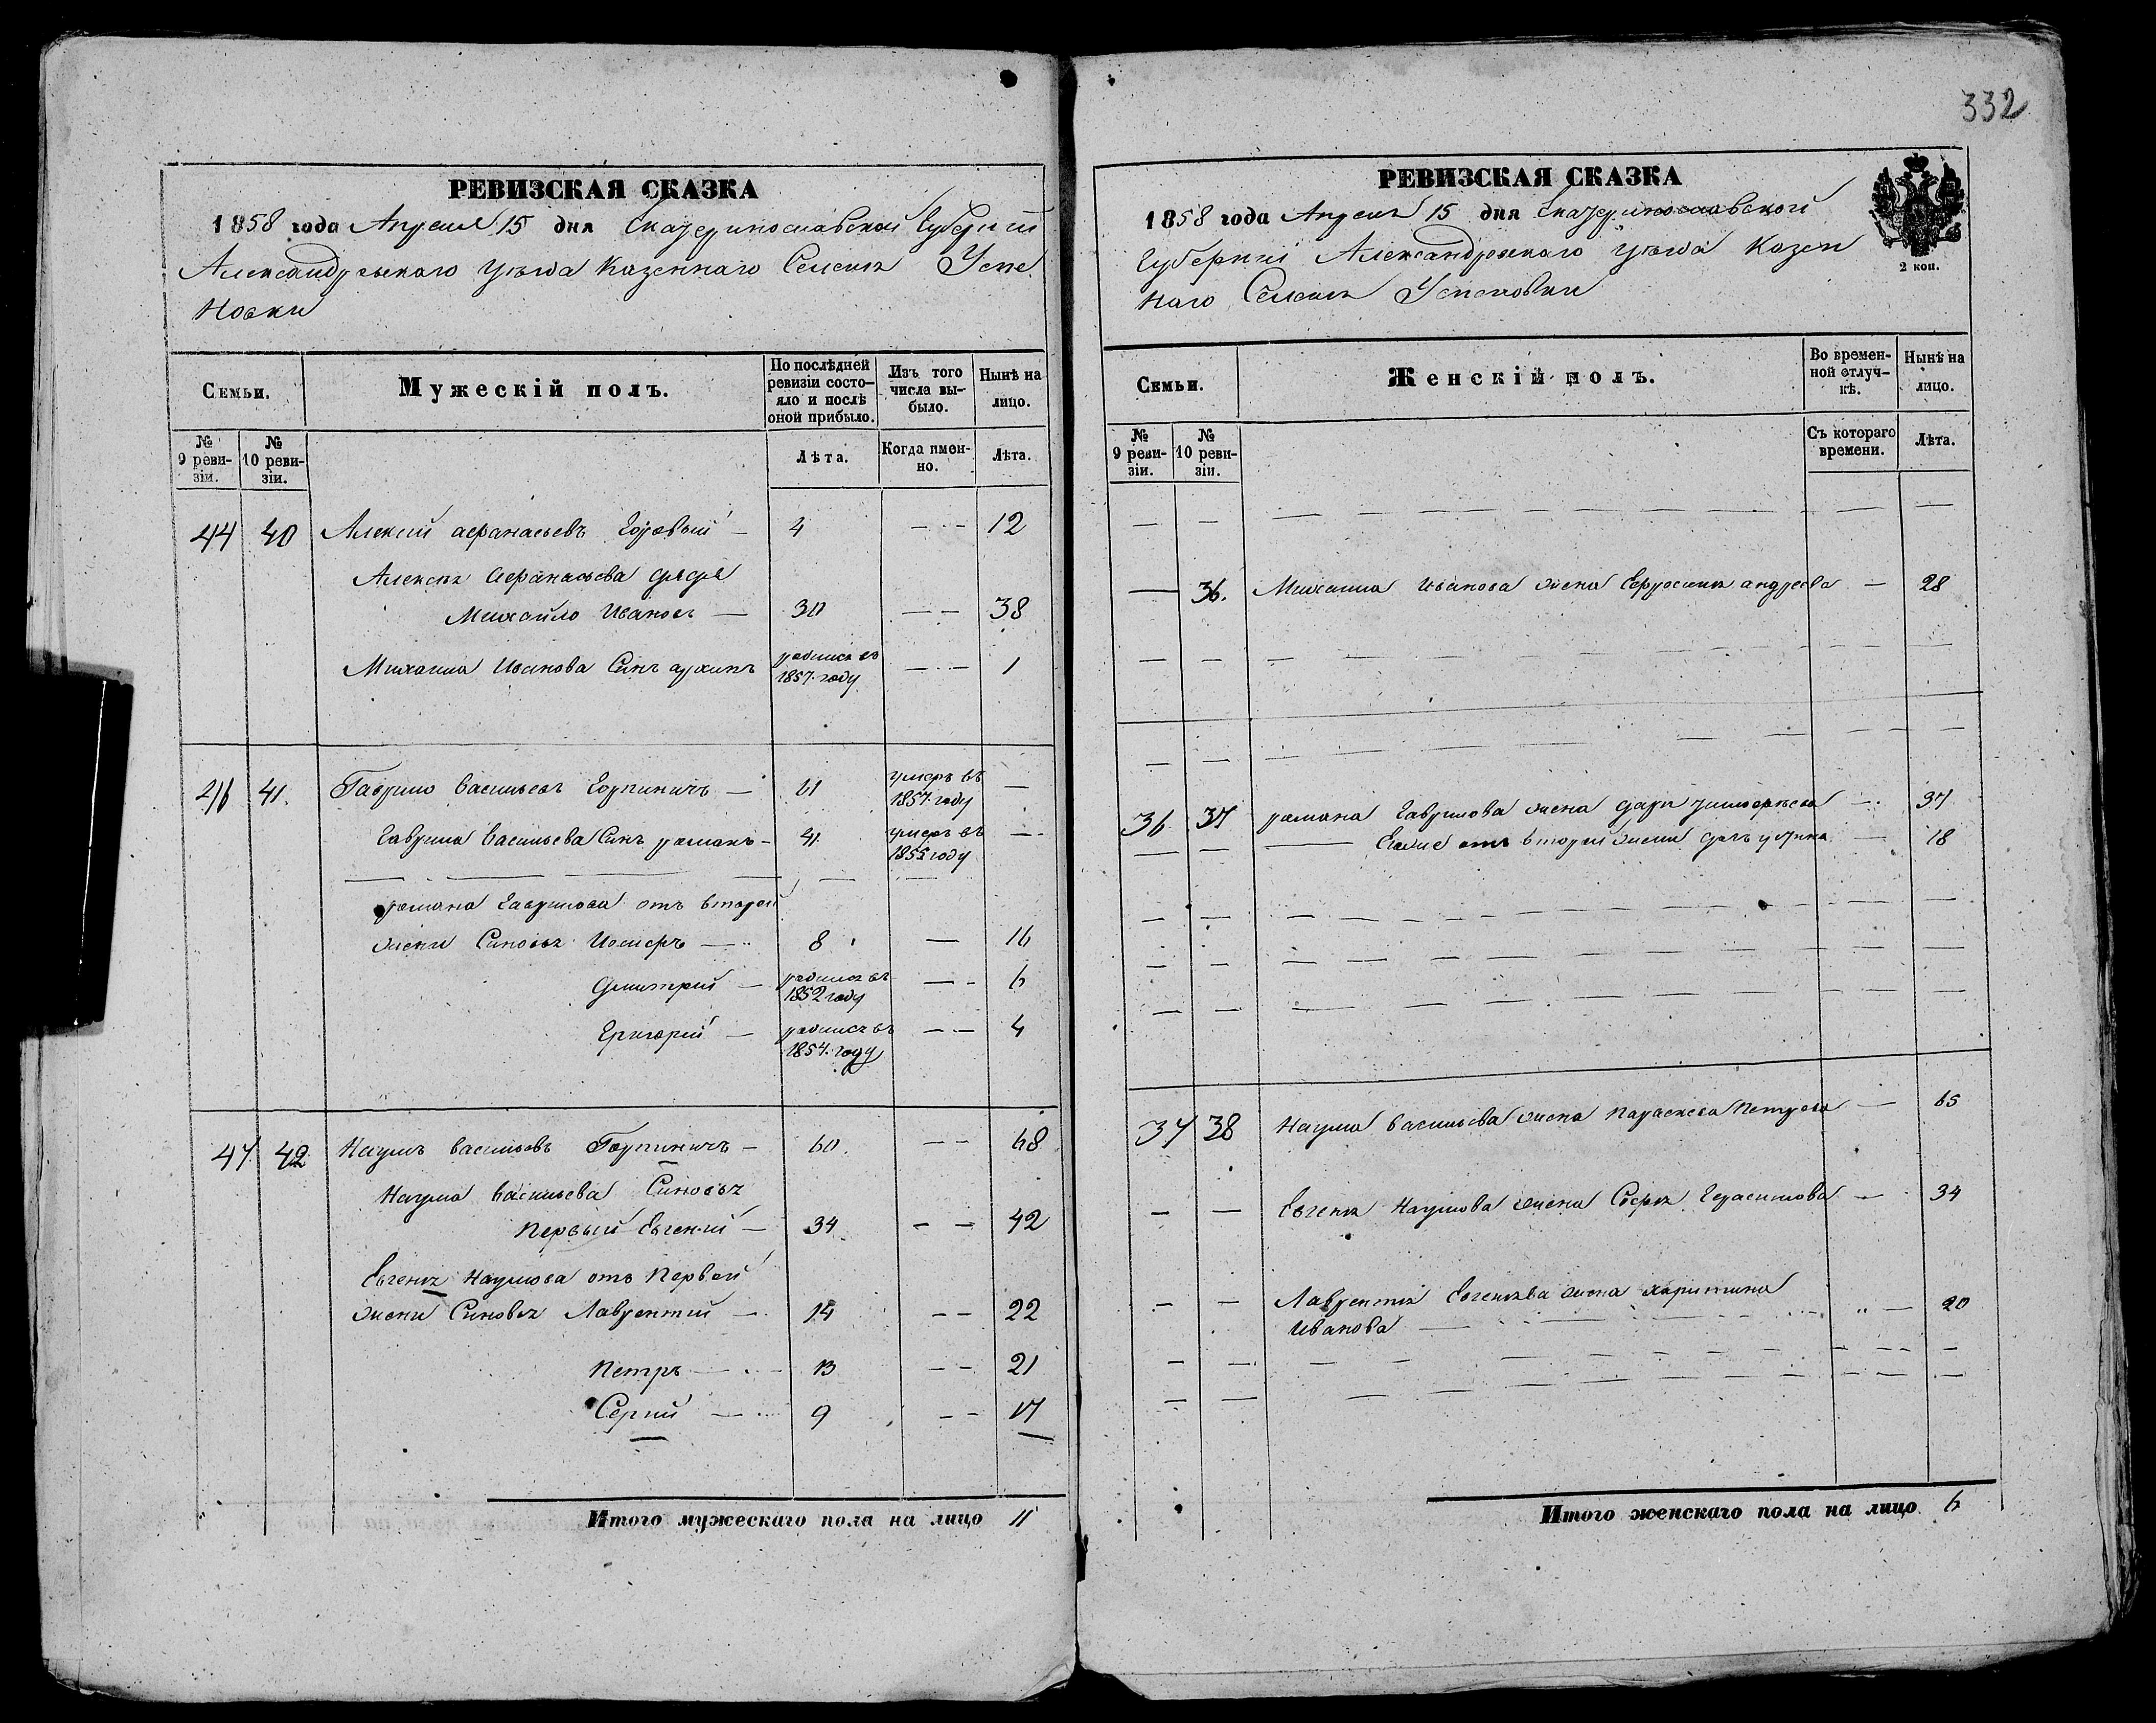 РЕВИЗСКАЯ СКАЗКА
1858 года Апреля 15 дня Екатеринославской Губернии
Александровскаго уѣзда Казеннаго Селения Успе
новки
Семьи.
Мужескій полъ.
По послѣдней ревизіи состо-
яло и послѣ оной прибыло.
Изъ того числа вы-
было.
Нынѣ на лицо.
№ 9 реви-
зіи.
№ 10 реви-
зіи.
Лѣта.
Когда имен-
но.
Лѣта.
44 40 Алексий афанасьевъ — 4 — 12
Алексея Афанасьева дядя
Михайло Ивановъ — 30 — 38
Михаила Иванова Синъ архипъ родился въ 1857 году — 1
46 41. Гаврило васильевъ Горпиничъ — 61 умеръ въ 1857 году —
Гаврила васильева Синъ романъ — 41. умеръ въ 1855 году —
романа Гаврилова отъ второй
жени Синовья — 8 — 16
Дмитрий — родился въ 1852 году — 6
Григорий — родился въ 1854 году — 4
47 42 Наумъ васильевъ Горпиничъ — 60. — 68
Наума васильева Синовья
первый Евгений — 34 — 42
Евгения Наумова отъ первой
жени Синовья Лаврентий — 14 — 22
Петръ — 13 — 21
Сергий — 9 — 17
Итого мужескаго пола на лицо 11
332
РЕВИЗСКАЯ СКАЗКА
1858 года Апреля 15 дня Екатеринославской
Губернии Александровскаго уѣзда Казен
наго Селения Успеновки
2 коп.
Семьи.
Женскій полъ.
Во времен-
ной отлуч-
кѣ.
Нынѣ на лицо.
№ 9 реви-
зіи.
№ 10 реви-
зіи.
Съ котораго времени.
Лѣта.
— 36. Михаила Иванова жена Ефросиния андреева — 28
36 37 романа Гаврилова жена дарья тимофеева — 37
Егоже отъ второй жени дочь — 18
37 38 Наума васильева жена параскева петрова — 65
Евгения Наумова жена Софья Герасимова — 34
Лаврентия Евгениева жена харитина
Иванова — 20
Итого женскаго пола на лицо 6